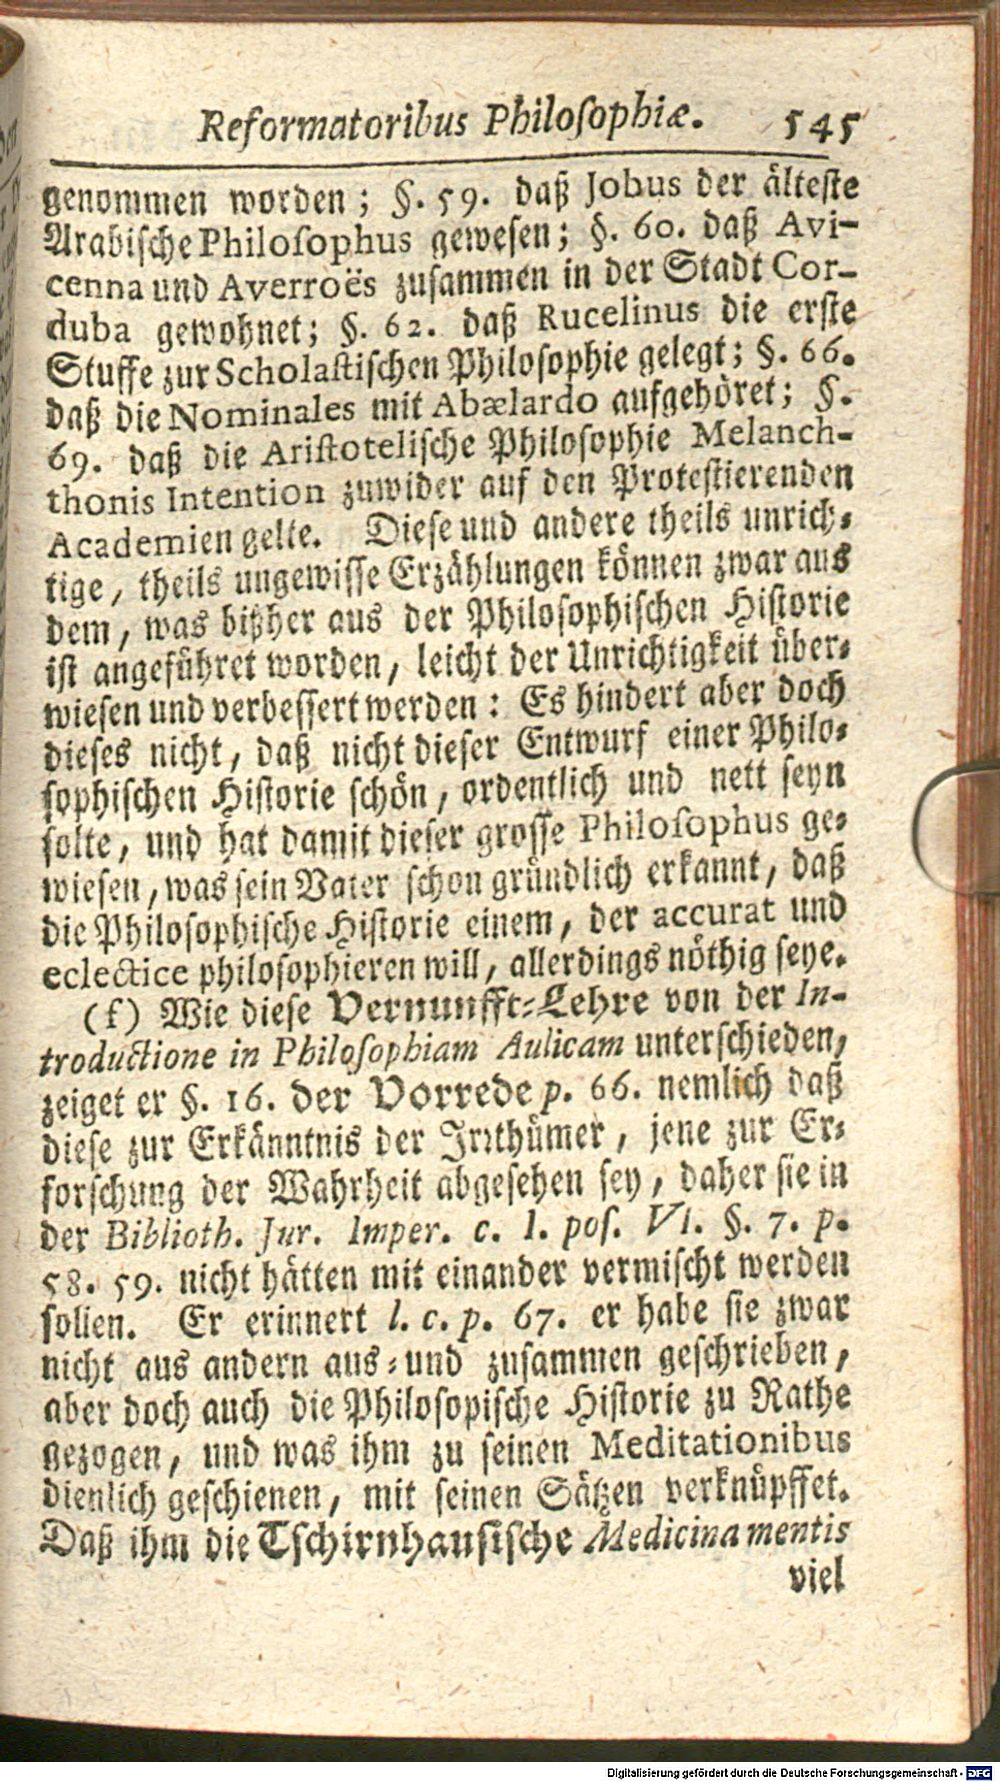 Reformatoribus Philosophiæ. 545
genommen worden; §. 59. daß Jobus der älteste
Arabische Philosophus gewesen; §. 60. daß Avi-
cenna und Averroës zusammen in der Stadt Cor-
duba gewohnet; §. 62. daß Rucelinus die erste
Stuffe zur Scholastischen Philosophie gelegt; §. 66.
daß die Nominales mit Abælardo aufgehöret; §.
69. daß die Aristotelische Philosophie Melanch-
thonis Intention zuwider auf den Protestierenden
Academien gelte. Diese und andere theils unrich-
tige, theils ungewisse Erzählungen können zwar aus
dem, was bißher aus der Philosophischen Historie
ist angeführet worden, leicht der Unrichtigkeit über-
wiesen und verbessert werden: Es hindert aber doch
dieses nicht, daß nicht dieser Entwurf einer Philo-
sophischen Historie schön, ordentlich und nett seyn
solte, und hat damit dieser grosse Philosophus ge-
wiesen, was sein Vater schon gründlich erkannt, daß
die Philosophische Historie einem, der accurat und
eclectice philosophieren will, allerdings nöthig seye.
(f) Wie diese Vernunfft-Lehre von der In-
troductione in Philosophiam Aulicam unterschieden,
zeiget er §. 16. der Vorrede p. 66. nemlich daß
diese zur Erkänntnis der Irrthümer, jene zur Er-
forschung der Wahrheit abgesehen sey, daher sie in
der Biblioth. Jur. Imper. c. I. pos. VI. §. 7. p.
58. 59. nicht hätten mit einander vermischt werden
sollen. Er erinnert l. c. p. 67. er habe sie zwar
nicht aus andern aus- und zusammen geschrieben,
aber doch auch die Philosopische Historie zu Rathe
gezogen, und was ihm zu seinen Meditationibus
dienlich geschienen, mit seinen Sätzen verknüpffet.
Daß ihm die Tschirnhausische Medicina mentis
viel
Digitalisierung gefördert durch die Deutsche Forschungsgemeinschaft - DFG